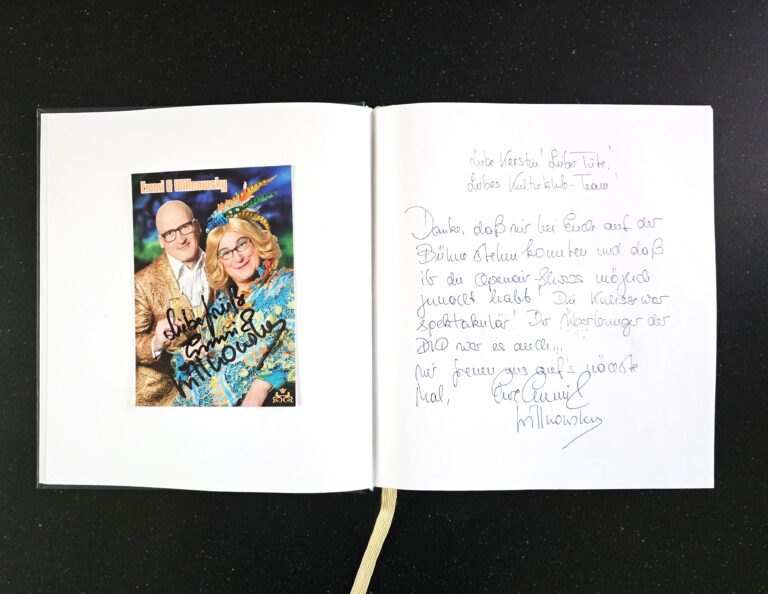 Emmi & Willnowsky
Liebe Grüße
Emmi &
Willnowsky
Liebe Kerstin! Lieber Tüte!
Liebes Kulturklub-Team!
Danke, daß wir bei Euch auf der
Bühne stehen konnten und daß
ihr die Openair-Shows möglich
gemacht habt! Die Kulisse war
spektakulär! Der Überbringer der
DVD war es auch...
Wir freuen uns auf's nächste
Mal, Eure Emmi &
Willnowsky